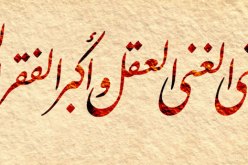 الغنى العقل وأكبر الفقر